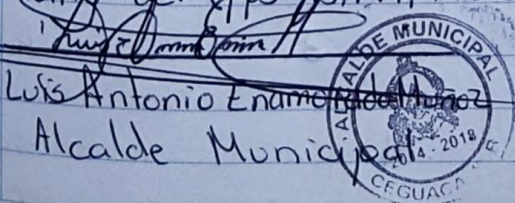 Luis Antonio Enamorado Muñoz
Alcalde Municipal
ALCALDE MUNICIPAL
2014 - 2018
CEGUACA